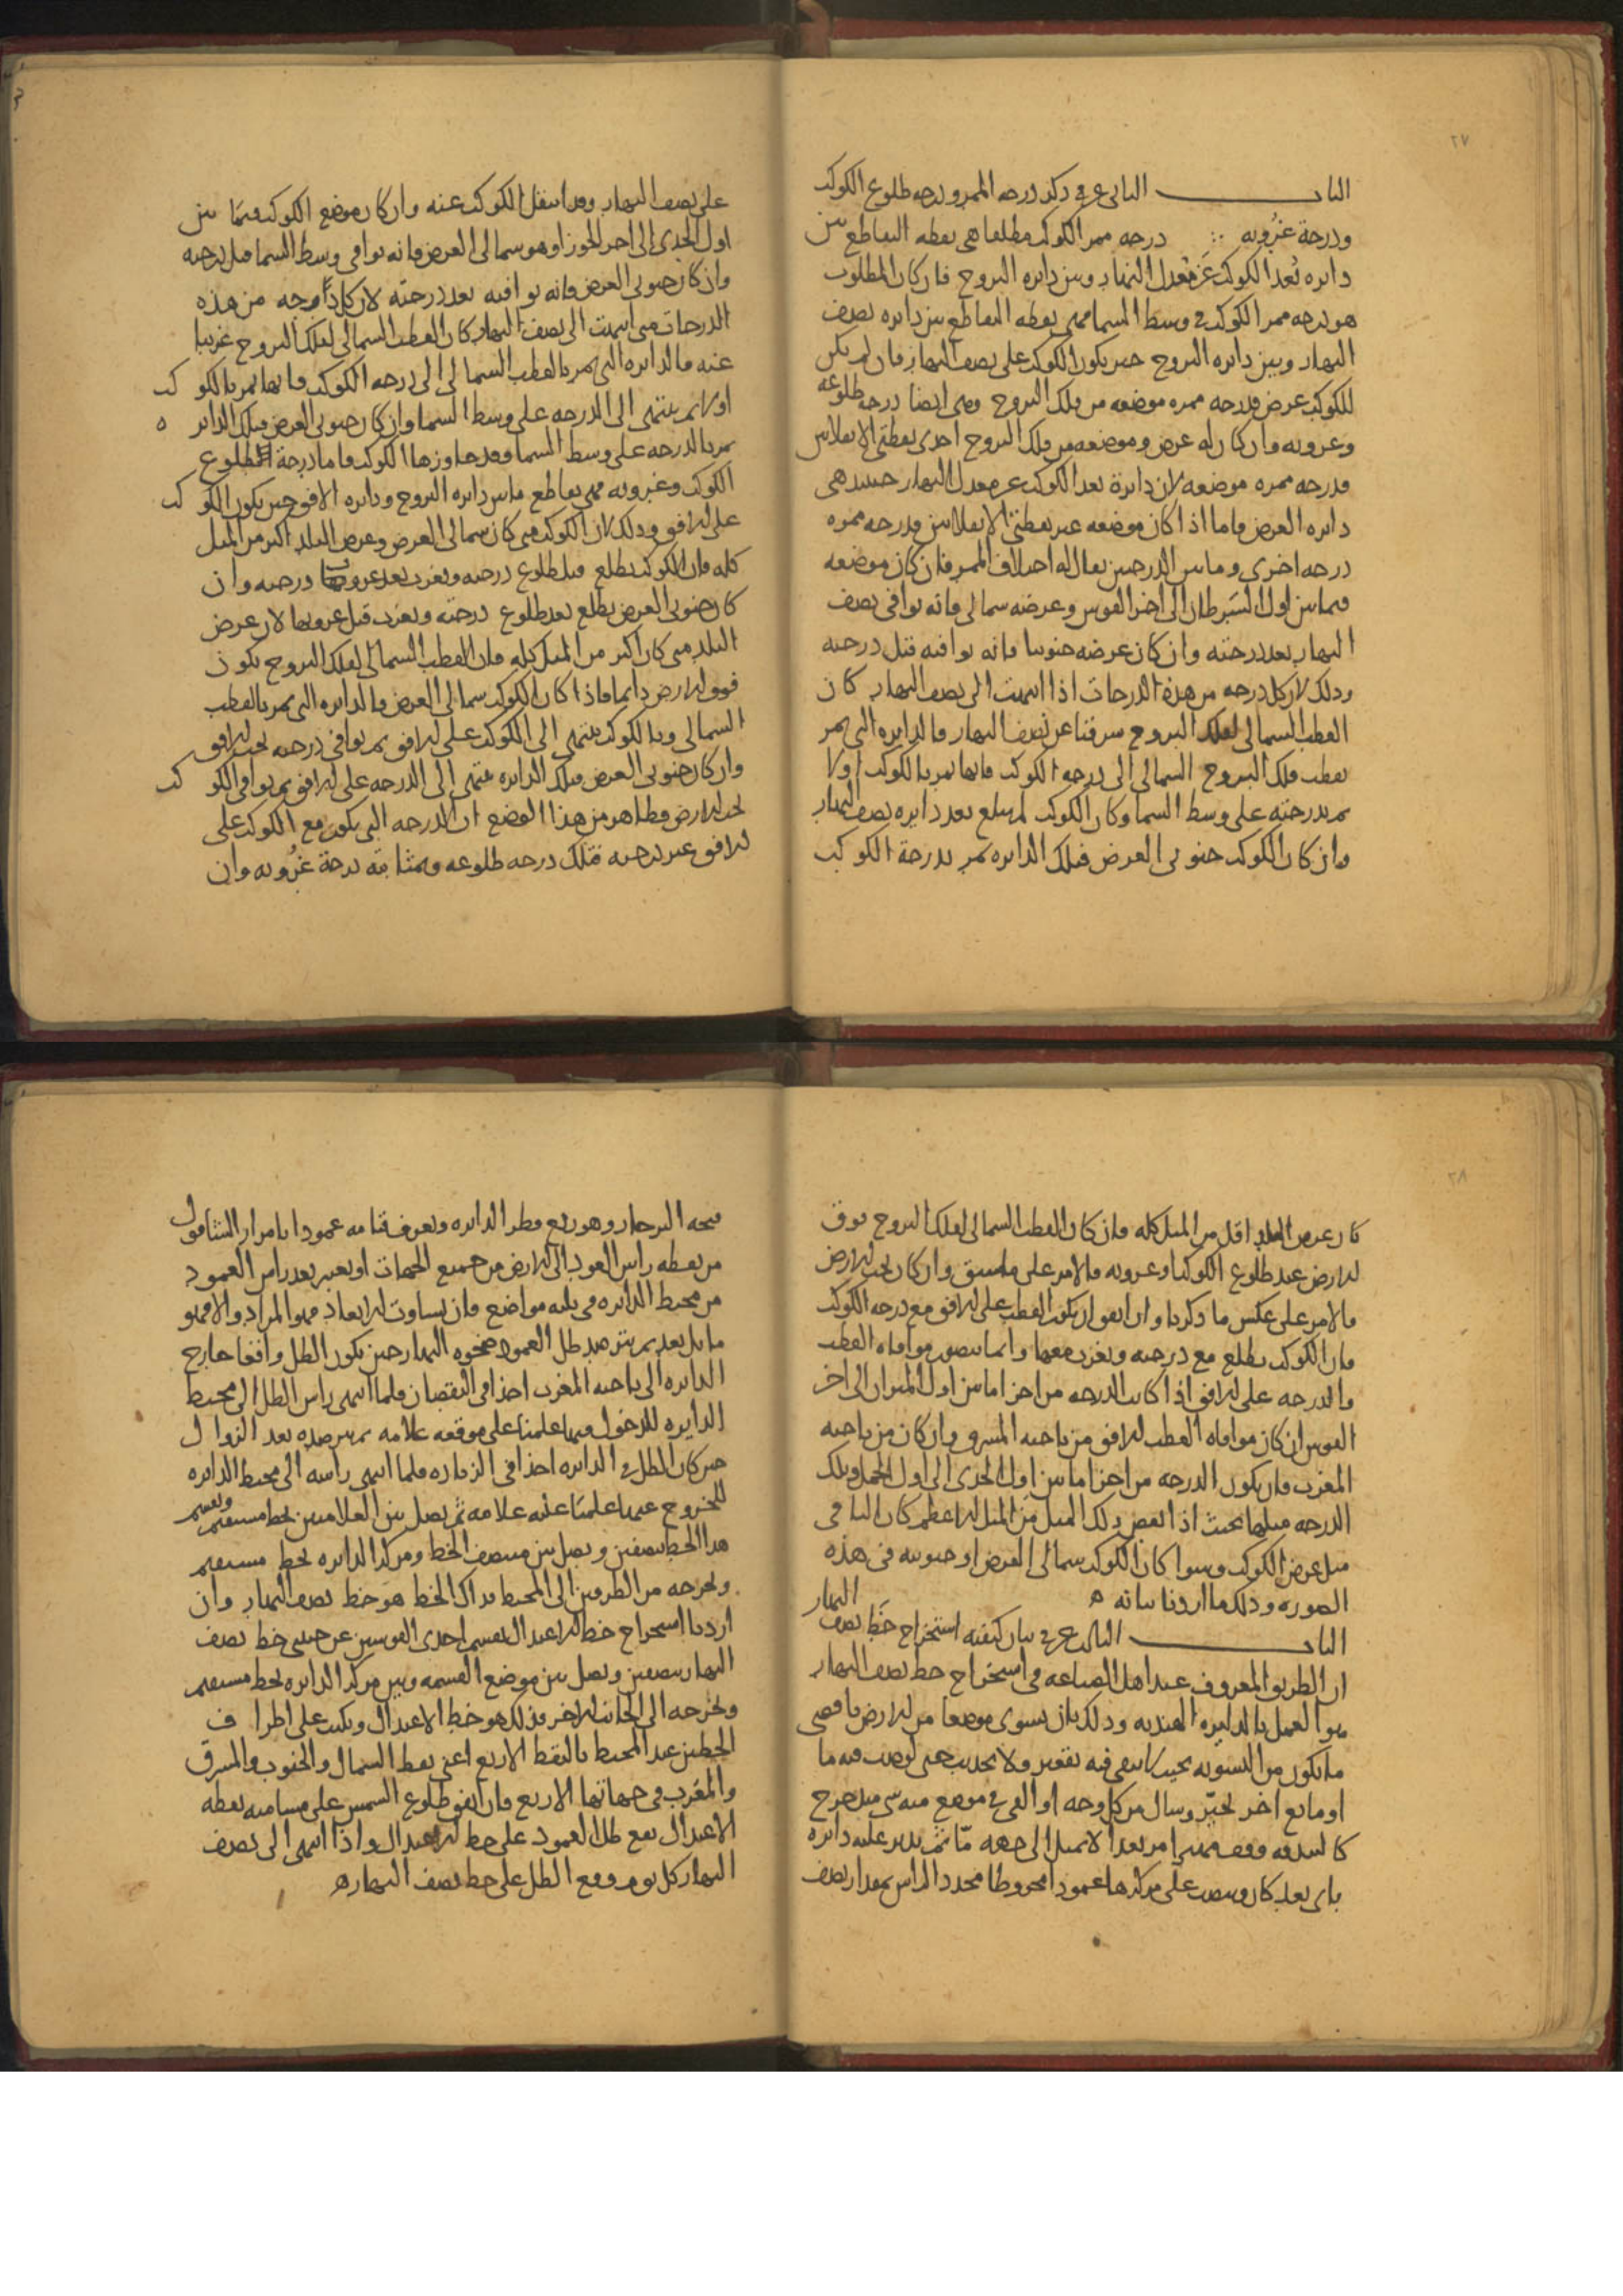 ٢٧
الباب الثاني عشر في ذكر درجه الممر ودرجه طلوع الكوكب
ودرجة غروبه درجه ممر الكوكب مطلقا هي نقطه التقاطع بين
دايره بُعد الكوكب عَن مُعدل النهار وبين دايره البروج فان كان المطلوب
هو درجه ممر الكوكب في وسط السما فهي نقطه التقاطع بين دايره نصف
النهار وبين دايره البروج حين يكون الكوكب على نصف النهار فان لم يكن
للكوكب عرض فدرجه ممره موضعه من فلك البروج وهي ايضا درجه طلوعه
وغروبه وان كان له عرض وموضعه من فلك البروج احدى نقطتي الانقلابين
فدرجه ممره موضعه لان دايرة بعد الكوكب عن معدل النهار حينيذ هي
دايره العرض فاما اذا كان موضعه غير نقطتي الانقلابين فدرجه ممره
درجه اخرى وما بين الدرجتين يقال له اختلاف الممر فان كان موضعه
فيما بين اول السَرطان الى اخر القوس وعرضه شمالى فانه يوافى نصف
النهار بعد درجته وان كان عرضه جنوبيا فانه يوافيه قبل درجته
وذلك لان كل درجه من هذه الدرجات اذا انتهت الى نصف النهار كان
القطب الشمالى لفلك البروج شرقيا عن نصف النهار فالدايره التي تمر
بقطب فلك البروج الشمالى الى درجه الكوكب فانها تمر بالكوكب اولا
ثم بدرجته على وسط السما وكان الكوكب لم يبلغ بعد دايره نصف النهار
وان كان الكوكب جنوبى العرض فتلك الدايره تمر بدرجة الكوكب
على نصف النهار وقد انتقل الكوكب عنه وان كان موضع الكوكب فيما بين
اول الجدى الى اخر الجوزا وهو شمالى العرض فانه يوافى وسط السما قبل درجته
وان كان جنوبى العرض فانه يوافيه بعد درجته لان كل درجه من هذه
الدرجات متى انتهت الى نصف النهار كان القطب الشمالى لفلك البروج غربيا
عنه فالدايره التي تمر بالقطب الشمالى الى درجه الكوكب فانها تمر بالكوكب
اولا ثم ينتهى الى الدرجه على وسط السما وان كان جنوبى العرض فتلك الدايره
تمر بالدرجه على وسط السما وقد جاوزها الكوكب فاما درجة طلوع
الكوكب وغروبه فهى تقاطع ما بين دايره البروج ودايره الافق حين يكون الكوكب
على الافق وذلك لان الكوكب متى كان شمالى العرض وعرض البلد اكبر من الميل
كله فان الكوكب يطلع قبل طلوع درجته ويغرب بعد غروبها درجته وان
كان جنوبى العرض يطلع بعد طلوع درجته ويغرب قبل غروبها لان عرض
البلد متى كان اكبر من الميل كله فان القطب الشمالى لفلك البروج يكون
فوق الارض دايما فاذا كان الكوكب شمالى العرض فالدايره التي تمر بالقطب
الشمالى وبالكوكب تنتهى الى الكوكب على الافق ثم يوافى درجته تحت الافق
وان كان جنوبى العرض فتلك الدايره تنتهى الى الدرجه على الافق ثم يوافى الكوكب
تحت الارض فظاهر من هذا الوضع ان الدرجه التي تكون مع الكوكب على
الافق غير درجته فتلك درجه طلوعه وبمثابته درجة غُروبه وان
٢٨
كان عرض البلد اقل من الميل كله فان كان القطب الشمالى لفلك البروج فوق
الارض عند طلوع الكوكب او غروبه فالامر على ما سبق وان كان تحت الارض
فالامر على عكس ما ذكرنا وان اتفق ان يكون القطب على الافق مع درجه الكوكب
فان الكوكب يطلع مع درجته ويغرب معها وانما يتصور موافاه القطب
والدرجه على الافق اذا كانت الدرجه من اجزا ما بين اول الميزان الى اخر
القوس ان كان موافاه القطب الافق من ناحيه المشرق وان كان من ناحيه
المغرب فان تكون الدرجه من اجزا ما بين اول الجدى الى اول الحمل وتلك
الدرجه ميلها بحيث اذا انقص ذلك الميل من الميل الاعظم كان الباقى
مثل عرض الكوكب وسوا كان الكوكب شمالى العرض او جنوبيه فى هذه
الصوره وذلك ما اردنا بيانه ه
الباب الثالث عشر في بيان كيفيه استخراج خط نصف النهار
ان الطريق المعروف عند اهل الصناعه فى استخراج خط نصف النهار
هو العمل بالدايره الهنديه وذلك بان يسوى موضعا من الارض باقصى
ما يكون من التسويه بحيث لا يبقى فيه تقعير ولا تحديب حتى لو صب فيه ما
او مايع اخر تحيّر وسال من كل وجه او القي في موضع منه شى متدحرج
كالبندقه وقف مهتزا مرتعدا لا تميل الى جهه مّا ثم يدير عليه دايره
باى بعد كان وينصب على مركزها عمودا مخروطا محدد الراس بمقدار نصف
فتحه البرجار وهو ربع قطر الدايره ويعرف قيامه عمودا بامرار الشاقول
من نقطه راس العود الى الارض من جميع الجهات او يعتبر بعد راس العمود
من محيط الدايره فى ثلثه مواضع فان تساوت الابعاد فهو المراد والا فهو
مايل بعد ثم يترصد ظل العمود ضحوه النهار حين يكون الظل واقعا خارج
الدايره الى ناحيه المغرب اخذا فى النقصان فلما انتهى راس الظل الى محيط
الدايره للدخول فيها علمنا على موقعه علامه ثم نترصده بعد الزوال
حين كان الظل في الدايره اخذا فى الزياده فلما انتهى راسه الى محيط الدايره
للخروج عنها علمنا عليه علامه ثم نصل بين العلامتين بخط مستقيم ونقسم
هذا الخط بنصفين ونصل بين منتصف الخط ومركز الدايره بخط مستقيم
ونخرجه من الطرفين الى المحيط فذاك الخط هو خط نصف النهار وان
اردنا استخراج خط الاعتدال نقسم احدى القوسين عن جنبتى خط نصف
النهار بنصفين ونصل بين موضع القسمه وبين مركز الدايره بخط مستقيم
ونخرجه الى الجانب الاخر فذلك هو خط الاعتدال ونكتب على اطراف
الخطين عند المحيط بالنقط الاربع اعنى نقط الشمال والجنوب والمشرق
والمغرب فى جهاتها الاربع فان اتفق طلوع الشمس على مسامته نقطه
الاعتدال يقع ظل العمود على خط الاعتدال واذا انتهى الى نصف
النهار كل يوم وقع الظل على خط نصف النهار ه